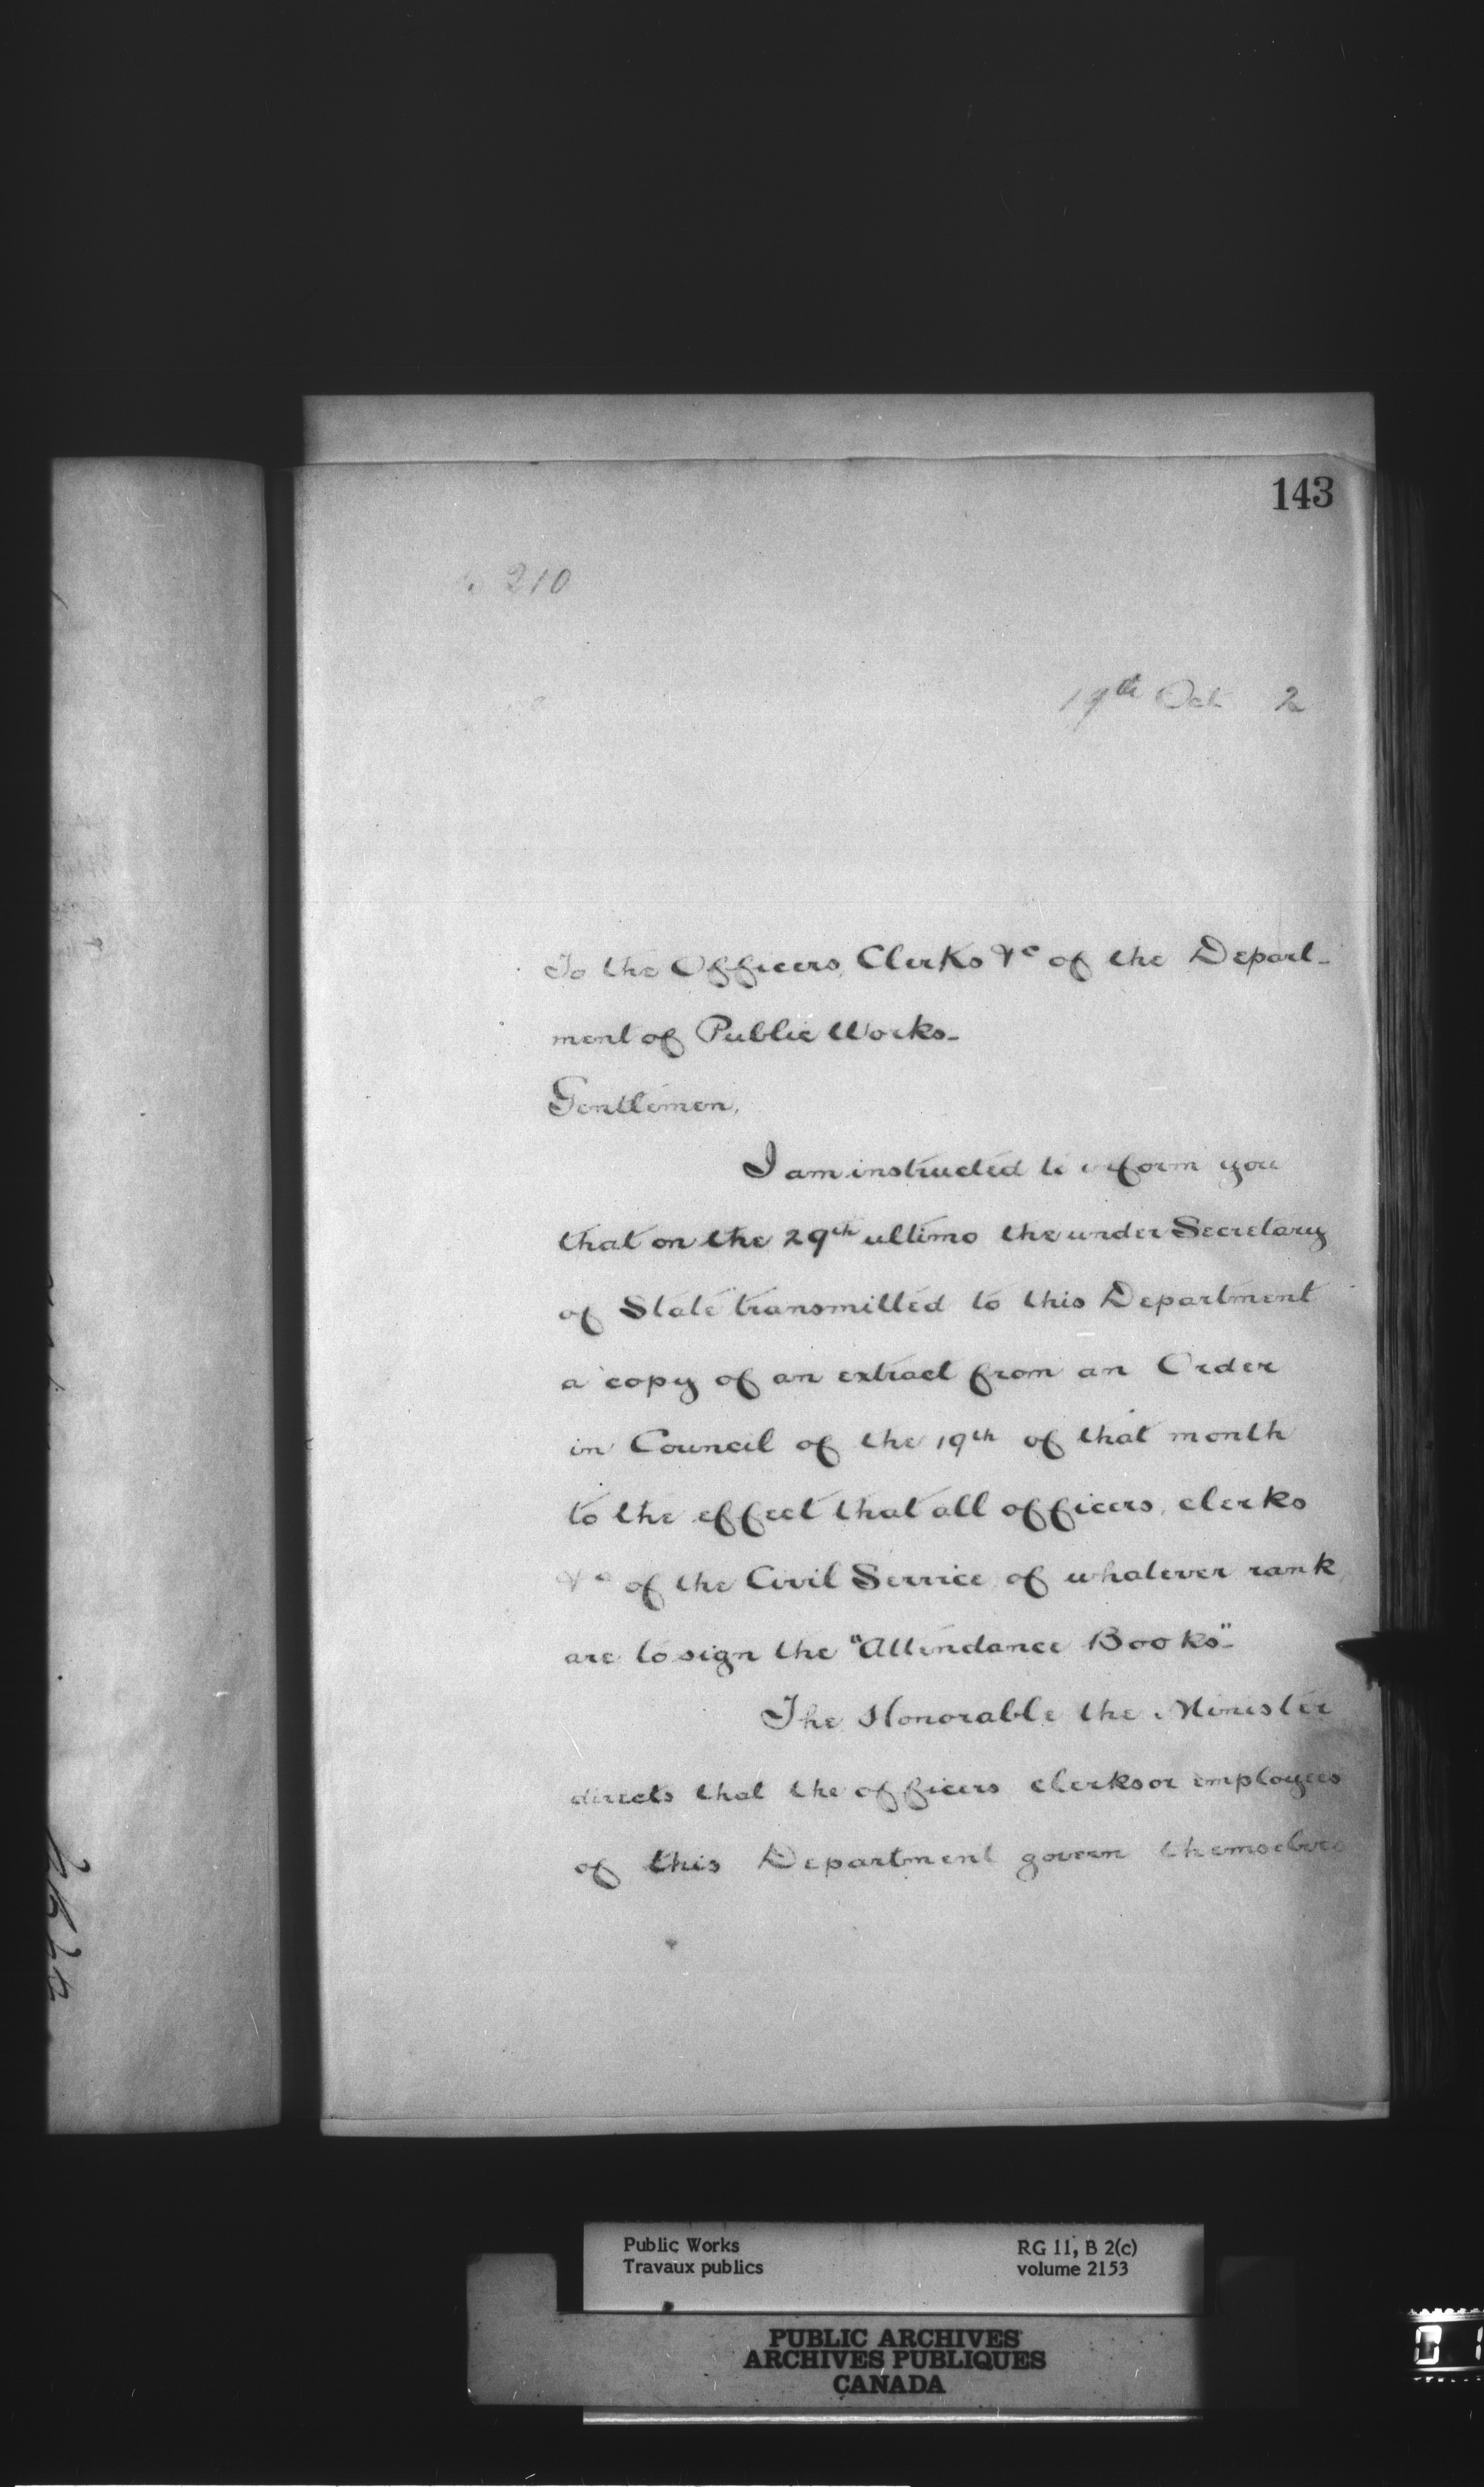 143
210
19th Oct 2
To the Officers, Clerks &c of the Depart-
ment of Public Works-
Gentlemen,
I am instructed to inform you
that on the 29th ultimo the under Secretary
of State transmitted to this Department
a copy of an extract from an Order
in Council of the 19th of that month
to the effect that all officers, clerks
&c of the Civil Service of whatever rank
are to sign the "Attendance Books"-
The Honorable the Minister
directs that the officers clerks or employees
of this Department govern themselves
Public Works
Travaux publics
RG 11, B 2(c)
volume 2153
PUBLIC ARCHIVES
ARCHIVES PUBLIQUES
CANADA